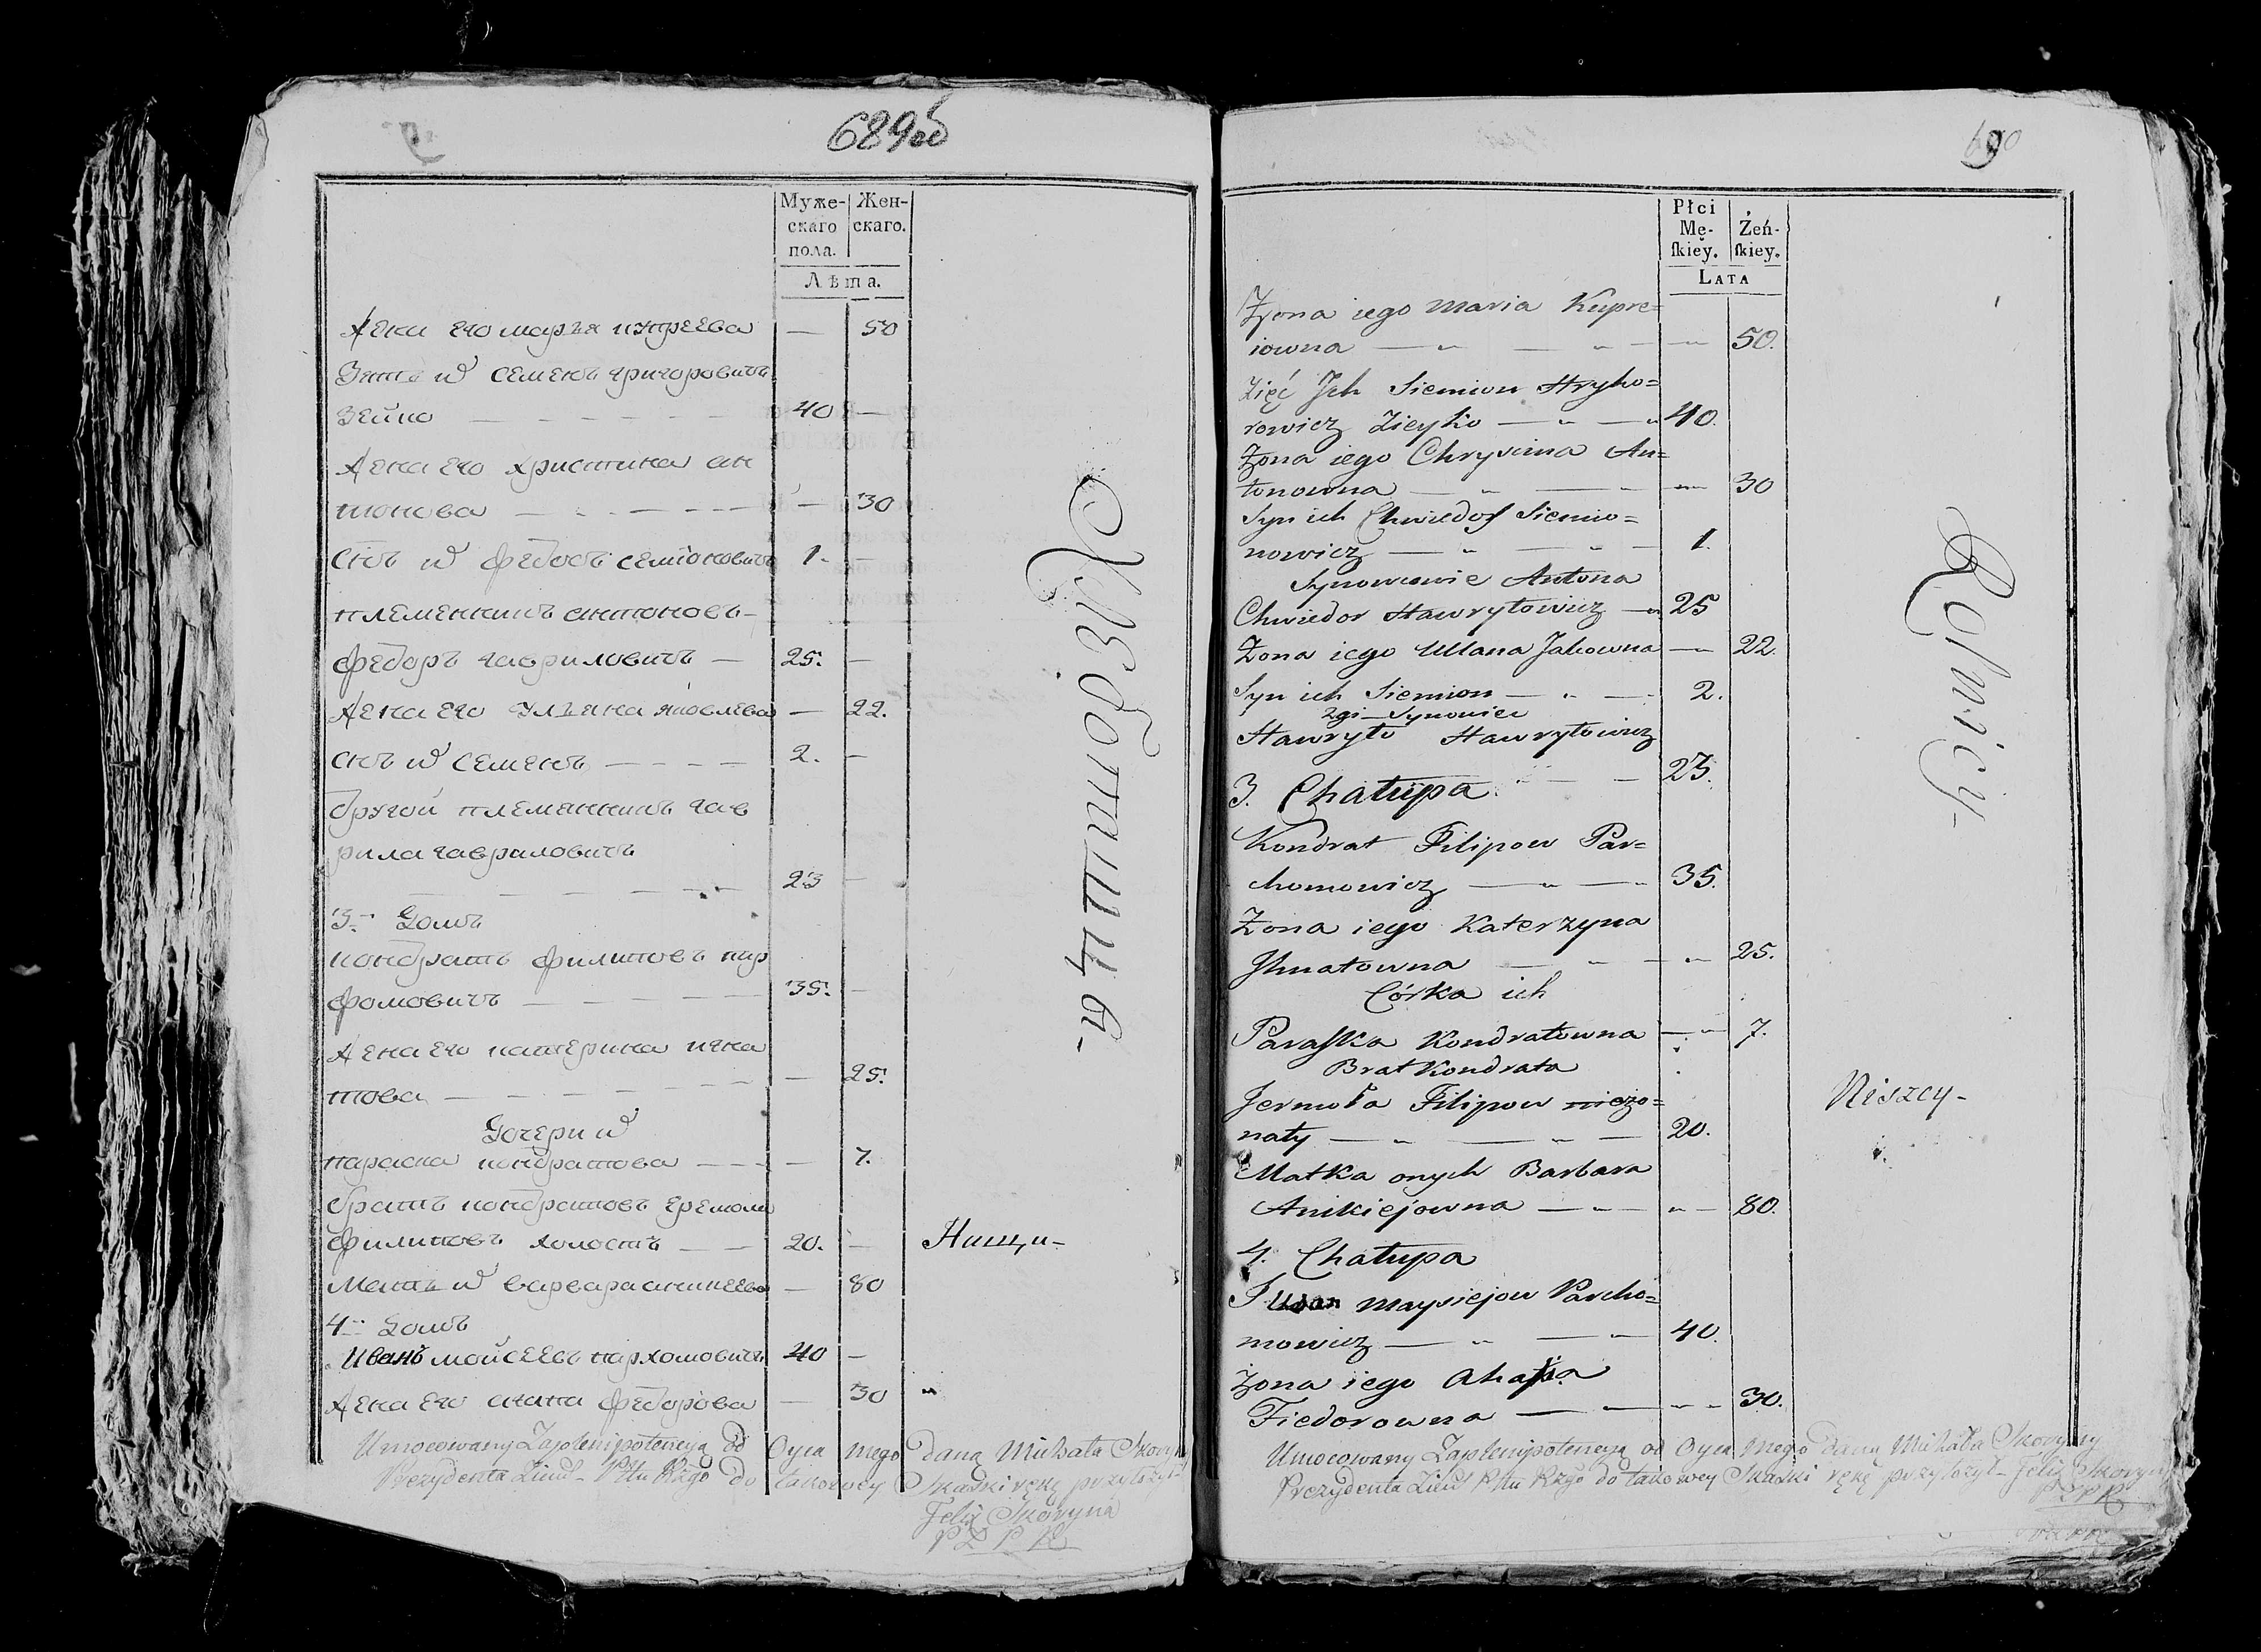 689об
Муже-
скаго
пола.
Жен-
скаго.
Лѣта.
Жена его марья купреева — 50
Зять их семенъ григоровичъ
Зейко — 40 —
Жена его христина ан
тонова — 30
Снъ их федосъ семіоновичъ 1. —
племенникъ антоновъ —
федоръ гавриловичъ — 25. —
Жена его ульяна яковлева — 22.
снъ их семенъ — 2. —
другой племянникъ гав
рила гавриловичъ
— 23 —
3. Домъ
кондратъ филиповъ пар
фомовичъ — 35. —
Жена его катерина игна
това — 25.
Дочери их
параска кондратова — 7.
братъ кондратовъ
филиповъ холостъ — 20. — Нищи-
Мать их варвара аникеева — 80
4. Домъ
Иванъ мойсеевъ пархомовичъ 40 —
Жена его агапа федорова — 30 "
Umocowany Zaplenipotencyą od Oyca mego daną Michała Skoryny
Prezydenta Ziems Pttu Rzgo do takowey Skaski rękę przyłożył
Felix Skoryna
P Z P R
690
Płci
Mę-
skiey.
Żeń-
skiey.
LATA
Żona iego Maria Kupre=
iowna — " — " — 50.
Zięć Ich Siemion Hryho=
rowicz Zieyko — " — " 40.
Żona iego Chrysima An=
tonowna — " — 30
Syn ich Chwiedos Siemio=
nowicz — " — " — 1.
Synowcowie Antona
Chwiedor Hawryłowicz — " 25
Żona iego Ullana Jakowna — 22.
Syn ich Siemion — " — 2.
2gi Synowiec
Hawryło Hawryłowicz
23.
3. Chałupa
Kondrat Filipow Par=
chomowicz — " — " 35.
Żona iego Katerzyna
Ihnatowna — " — " 25.
Córka ich
Paraska Kondratowna — " 7.
Brat Kondrata
Jermoła Filipow niezo=
naty — " — " — 20.
Niszcy-
Matka onych Barbara
Anikiejowna — " — " — 80.
4. Chałupa
Iwan Maysiejow Parcho=
mowicz — " — " 40.
Żona iego Ahapa
Fiedorowna — " — 30.
Rolnicy-
Umocowany Zaplenipotencyą od Oyca mego daną Michała Skoryny
Prezydenta Ziems Pttu Rzgo do takowey Skaski rękę przyłożył Felix Skoryna
P Z P R